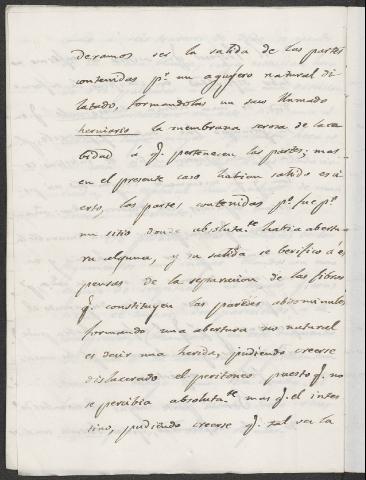 deramos ser la salida de las partes
contenidas pr. un agujero natural di-
latado, formandolas un saco llamado
herniario la membrana serosa de la ca-
bidad á q. pertenecen las partes; mas
en el presente caso habian salido es ci-
erto, las partes contenidas po. fue pr.
un sitio donde absolutate. habia abertu-
ra alguna, y su salida se berifico á es
pensas de la separacion de las fibras
q. constituyen las paredes abdominales
formando una abertura no natural
es decir una herida, pudiendo creerse
dislacerado el peritoneo puesto q. no
se percibia absolutate. mas q. el intes
tino, pudiendo creerse q. tal sea la